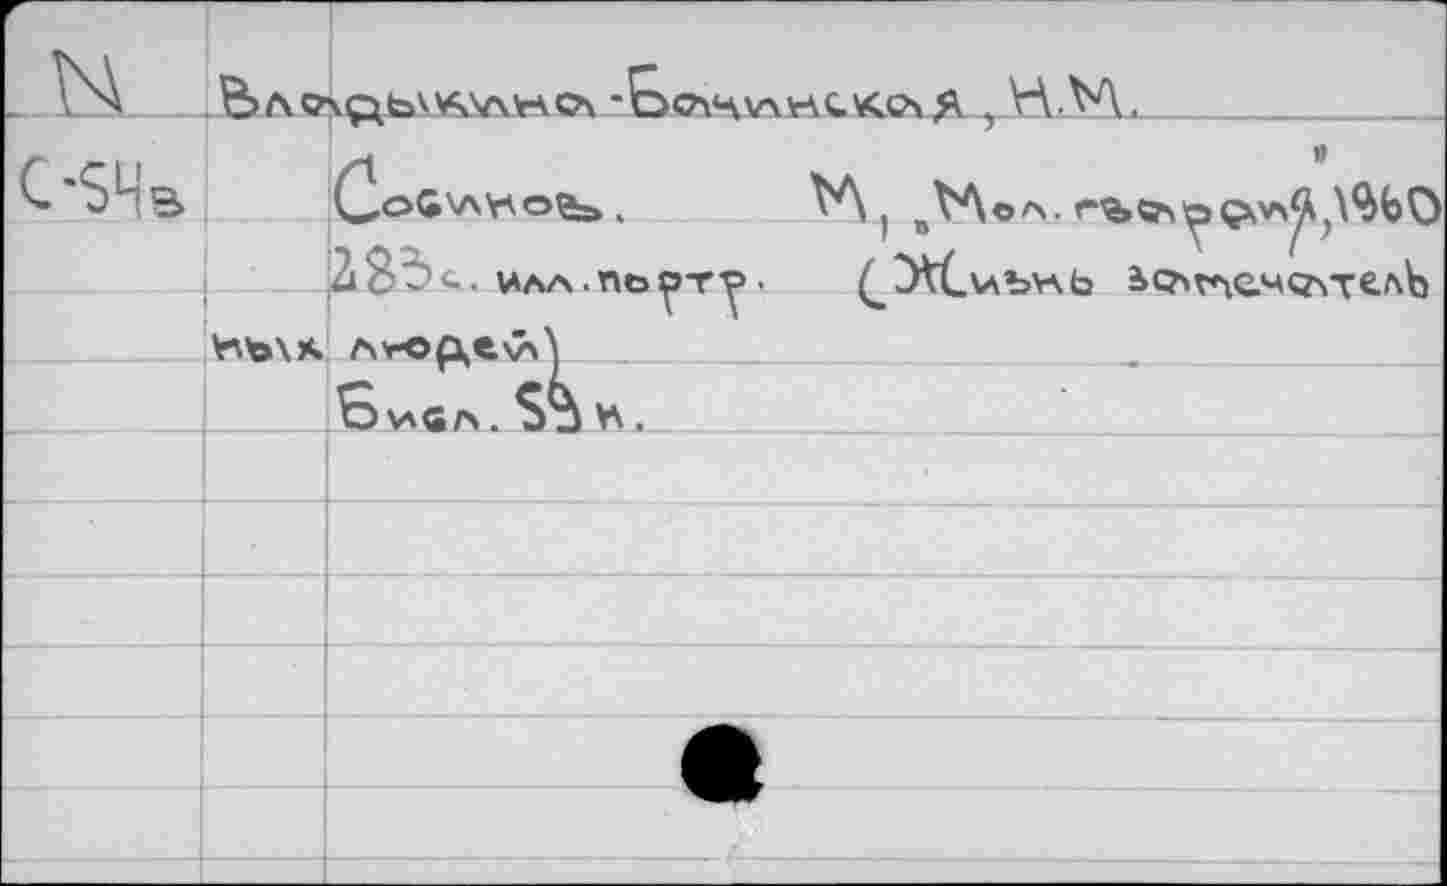 N Владыкина-Бачинская, Н.М.
С-54в Собинов. М., „Мол. гвардия", 1960
283с. илл.портр. (Жизнь замечатель
ных людей)
Библ. 59 н.